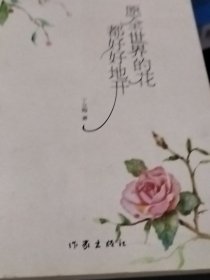 愿全世界的花
都好好地开
丁立梅 著
作家出版社